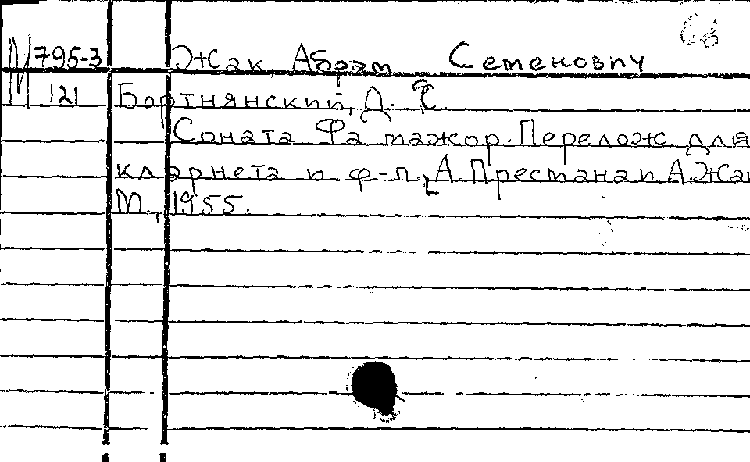 Сб
М 795-3 Жак, Абрам Семенович
121 Бортнянский, Д. С.
Соната Фа мажор. Перелож для
кларнета и ф-п. А. Престана и А. Жак
М., 1955.